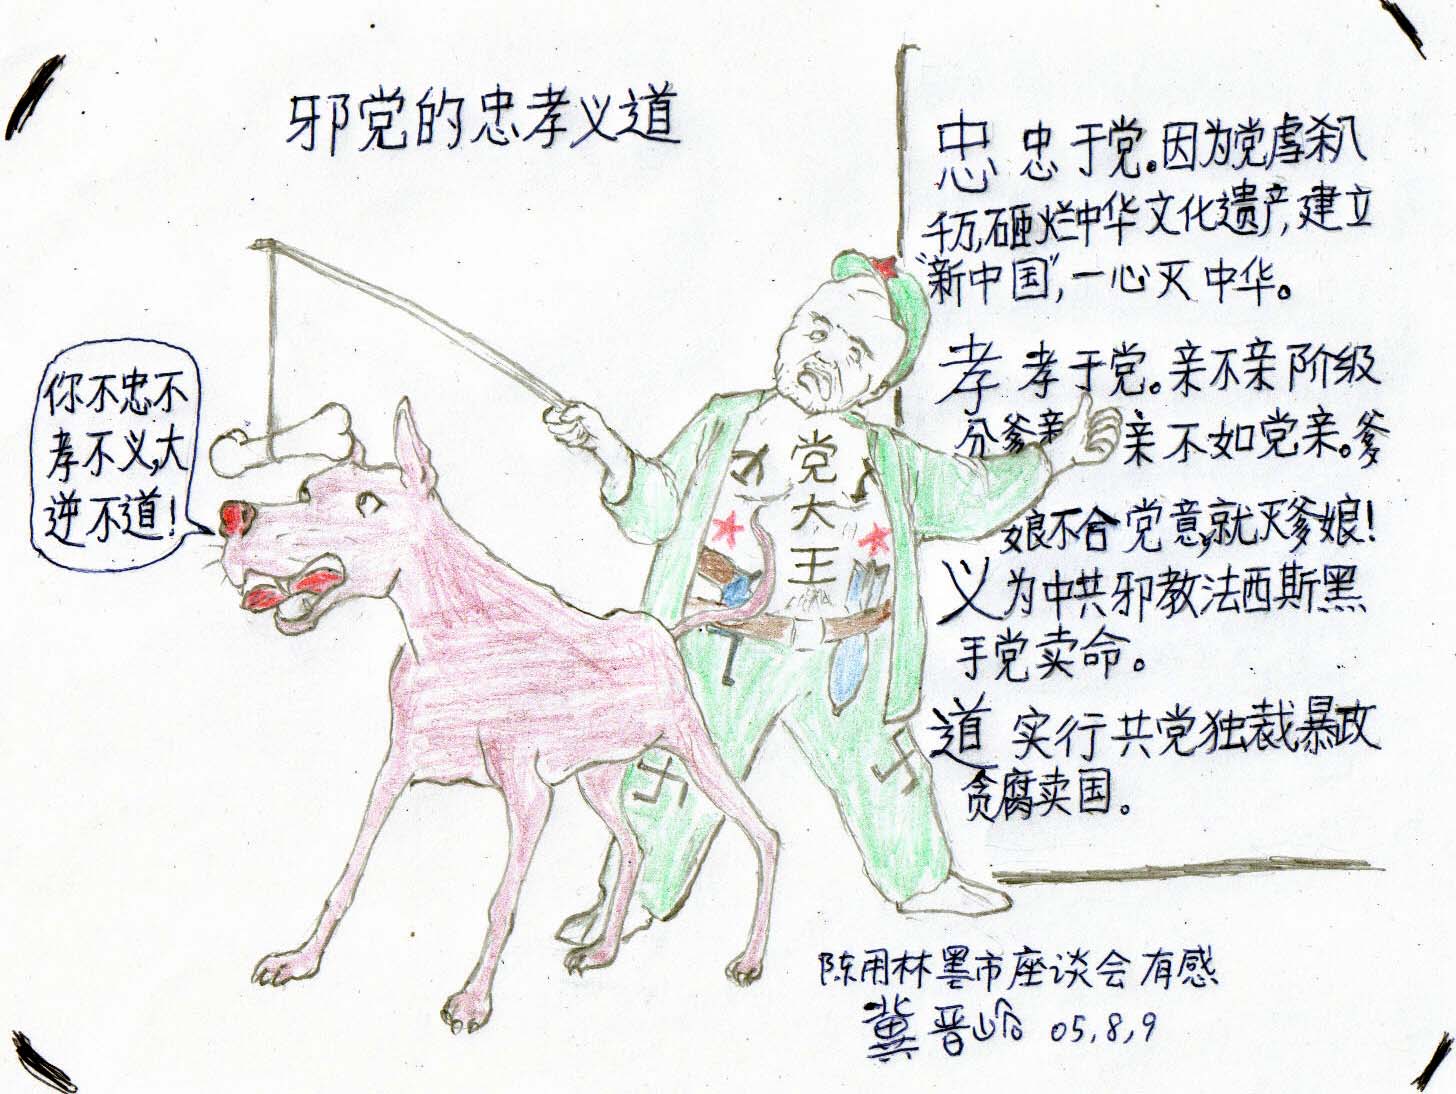 邪党的忠孝义道
忠 忠于党。因为党虐杀八
千万，砸烂中华文化遗产，建立
“新中国”，一心灭中华。
孝 孝于党。亲不亲阶级
分爹亲 亲不如党亲。爹
娘不合党意，就灭爹娘！
义 为中共邪教法西斯黑
手党卖命。
道 实行共党独裁暴政
贪腐卖国。
你不忠不
孝不义，大
逆不道！
党
大
王
陈用林墨市座谈会有感
冀晋 05,8,9